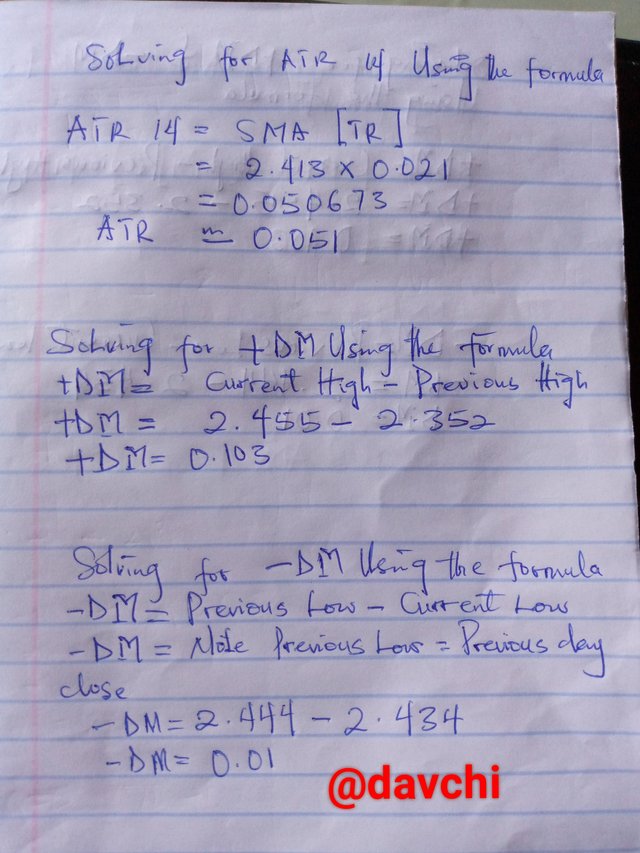 Solving for ATR 14 Using the formula
ATR 14 = SMA [TR]
= 2.413 x 0.021
= 0.050673
ATR ≃ 0.051
Solving for +DM Using the formula
+DM = Current High - Previous High
+DM = 2.455 - 2.352
+DM = 0.103
Solving for -DM Using the formula
-DM = Previous Low - Current Low
-DM = Note Previous Low = Previous day
close
-DM = 2.444 - 2.434
-DM = 0.01
@davchi